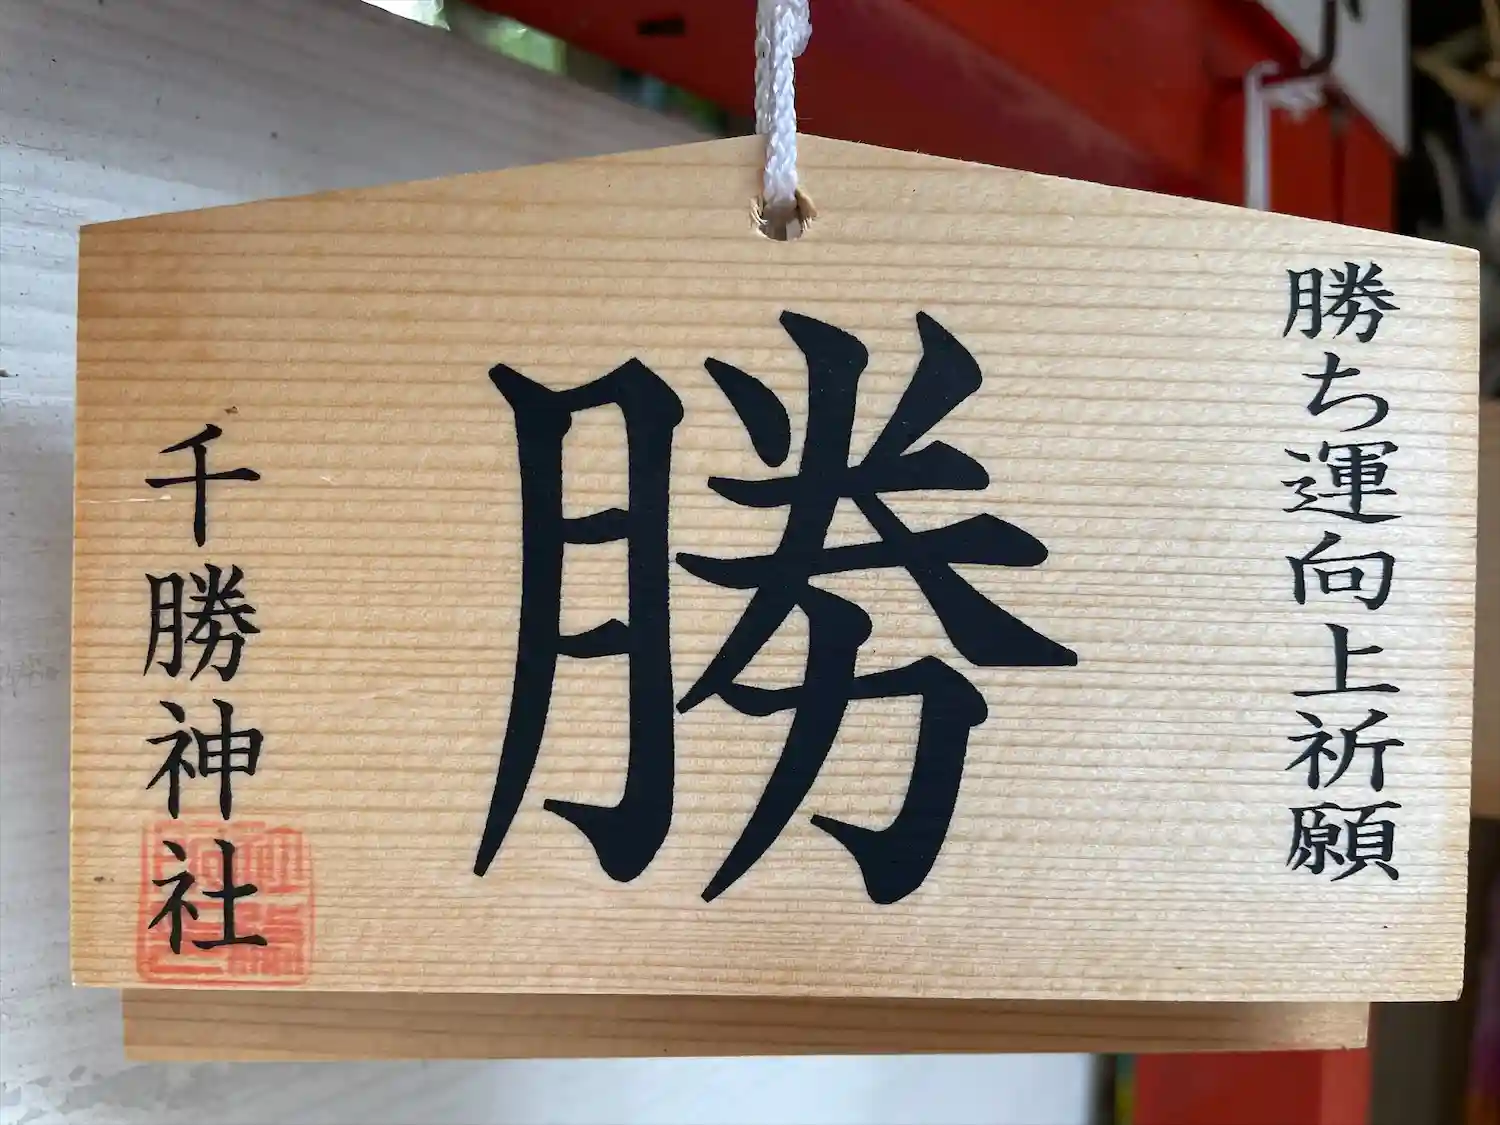 勝ち運向上祈願
勝
千勝神社